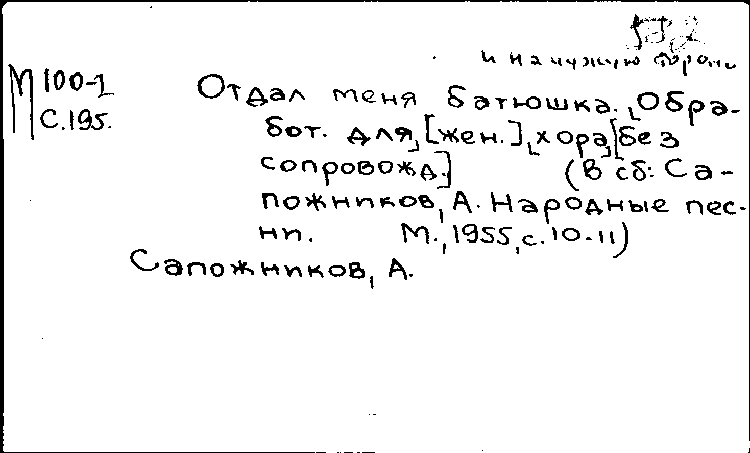 и на чужую
М 100-1
с.195.
Отдал меня батюшка. Обра-
бот. для [жен.] хора [без
сопровожд.] (В сб: Са-
пожников, А. Народные пес-
ни. М., 1955, с. 10-11)
Сапожников, А.